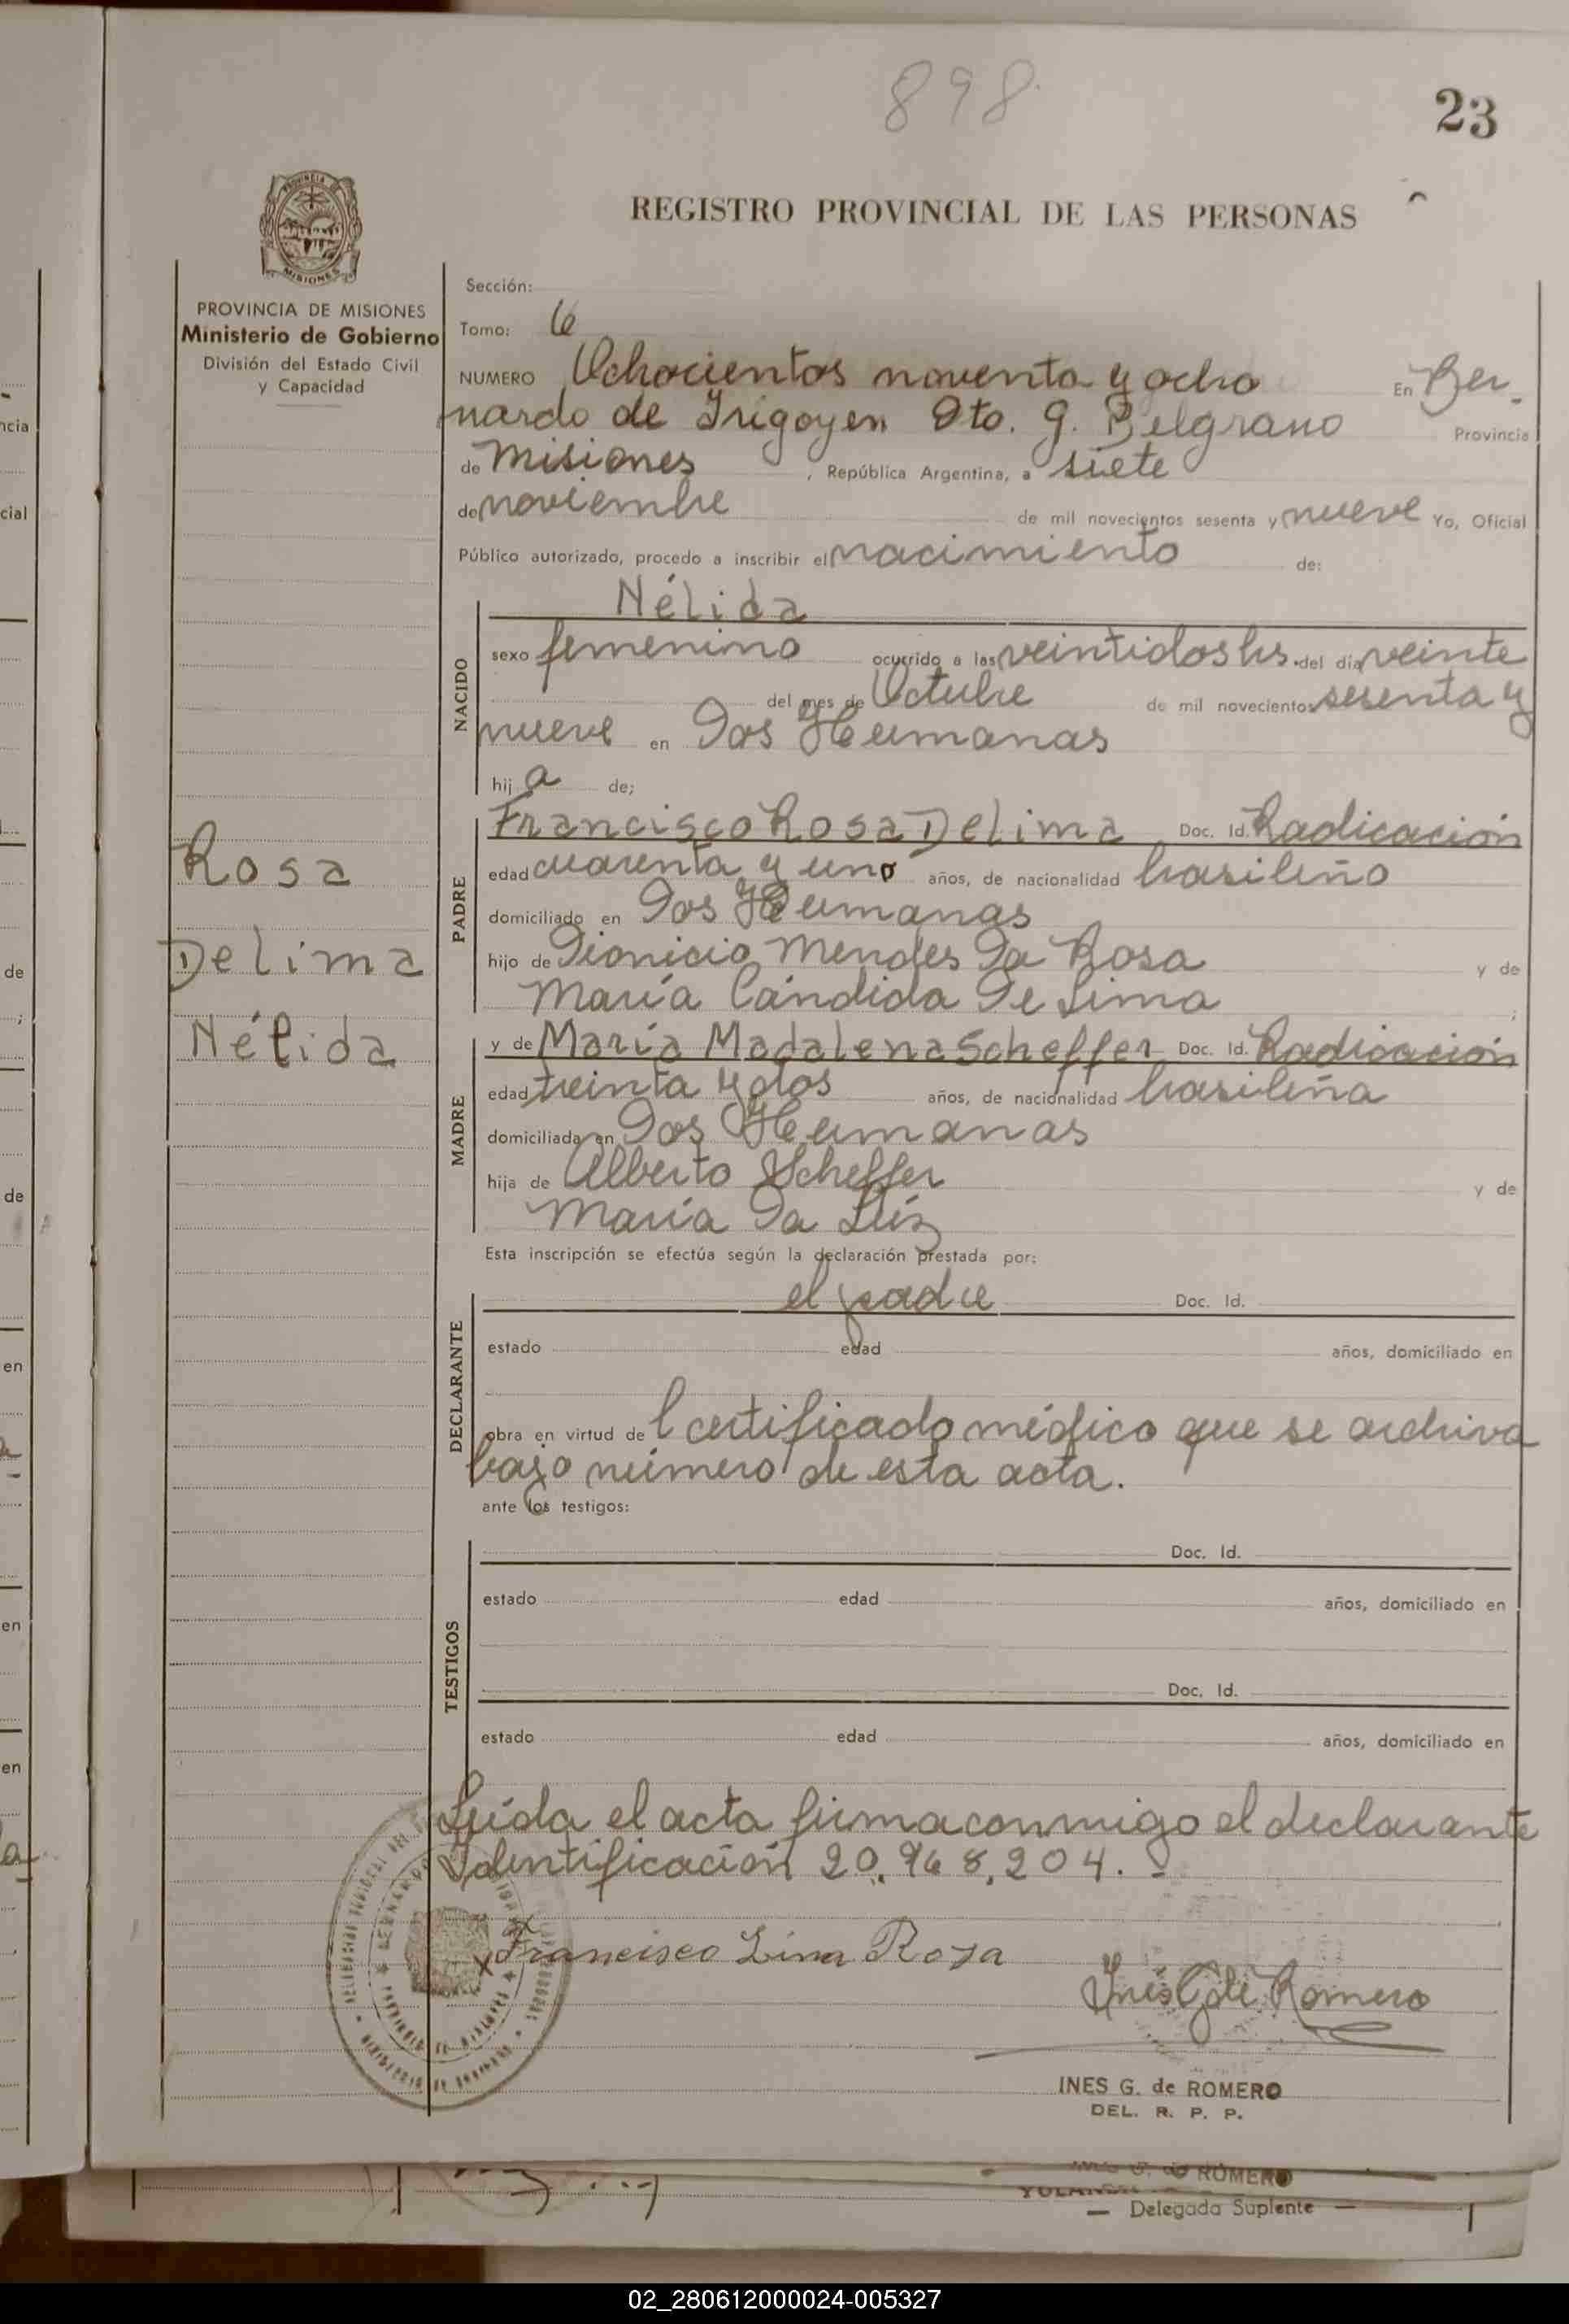 898
23
REGISTRO PROVINCIAL DE LAS PERSONAS
PROVINCIA
MISIONES
PROVINCIA DE MISIONES
Ministerio de Gobierno
División del Estado Civil
y Capacidad
Sección:
Tomo: 6
NUMERO Ochocientos noventa y ocho En Ber-
nardo de Irigoyen Dto. G. Belgrano Provincia
de Misiones, República Argentina, a siete
de noviembre de mil novecientos sesenta y nueve Yo, Oficial
Público autorizado, procedo a inscribir el nacimiento de:
NACIDO
Nélida
sexo femenino ocurrido a las veintidos hs. del día veinte
del mes de Octubre de mil novecientos sesenta y
nueve en Dos Hermanas
hij a de;
PADRE
Francisco Rosa Delima Doc. Id. Radicación
edad cuarenta y uno años, de nacionalidad brasileño
domiciliado en Dos Hermanas
hijo de Dionicio Mendes Da Rosa y de
María Cándida De Lima ;
Rosa
Delima
Nélida
MADRE
y de María Madalena Scheffer Doc. Id. Radicación
edad treinta y dos años, de nacionalidad brasileña
domiciliada en Dos Hermanas
hija de Alberto Scheffer y de
María Da Luíz
Esta inscripción se efectúa según la declaración prestada por:
DECLARANTE
el padre Doc. Id.
estado edad años, domiciliado en
obra en virtud de l certificado médico que se archiva
bajo número de esta acta.
ante los testigos:
TESTIGOS
Doc. Id.
estado edad años, domiciliado en
Doc. Id.
estado edad años, domiciliado en
Leída el acta firma conmigo el declarante
Identificación 20.968.204.-
x Francisco Lima Rosa
Inés G de Romero
INES G. de ROMERO
DEL. R. P. P.
ROMERO
— Delegada Suplente —
02_280612000024-005327